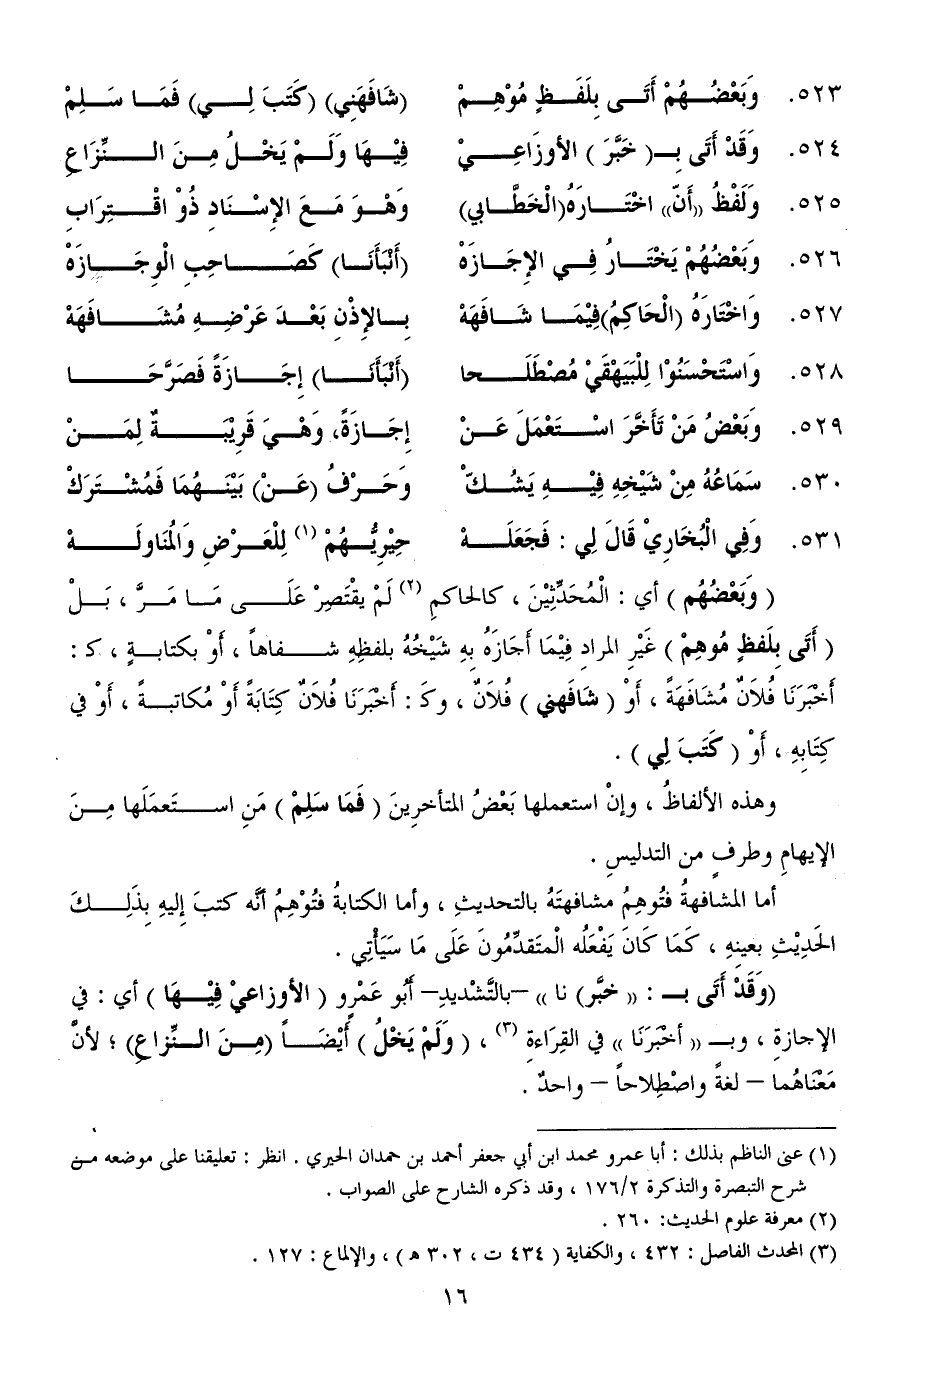 ٥٢٣. وَبَعْضُهُمْ أَتَى بِلَفْظٍ مُوْهِمْ (شَافَهَنِي) (كَتَبَ لِي) فَمَا سَلِمْ
٥٢٤. وَقَدْ أَتَى بِـ( خَبَّرَ ) الأوزَاعِيْ فِيْهَا وَلَمْ يَخْلُ مِنَ النِّزَاعِ
٥٢٥. وَلَفْظُ «أَنّ» اخْتَارَهُ(الْخَطَّابي) وَهْوَ مَعَ الإسْنَادِ ذُوْ اقْتِرَابِ
٥٢٦. وَبَعْضُهُمْ يَخْتَارُ فِي الإجَازَهْ (أَنْبَأَنَا) كَصَاحِبِ الْوِجَازَهْ
٥٢٧. وَاخْتَارَهُ (الْحَاكِمُ)فِيْمَا شَافَهَهْ بِالإذْنِ بَعْدَ عَرْضِهِ مُشَافَهَهْ
٥٢٨. وَاسْتَحْسَنُوْا لِلْبَيْهَقَيْ مُصْطَلَحا (أَنْبَأَنَا) إجَازَةً فَصَرَّحَا
٥٢٩. وَبَعْضُ مَنْ تَأَخَّرَ اسْتَعْمَلَ عَنْ إجَازَةً، وَهْيَ قَرِيْبَةٌ لِمَنْ
٥٣٠. سَمَاعُهُ مِنْ شَيْخِهِ فِيْهِ يَشُكّْ وَحَرْفُ (عَنْ) بَيْنَهُمَا فَمُشْتَرَكْ
٥٣١. وَفِي الْبُخَارِيْ قَالَ لِي : فَجَعَلَهْ حِيْرِيُّهُمْ (١) لِلْعَرْضِ وَالْمُنَاوَلَهْ
( وَبَعْضُهُم ) أي : الْمُحَدِّثِيْنَ ، كالحاكمِ (٢) لَمْ يقْتَصِرْ عَلَى مَا مَرَّ ، بَلْ
( أَتَى بِلَفظٍ مُوهِمْ ) غَيْرِ المرادِ فِيْمَا أَجَازَهُ بِهِ شَيْخُهُ بلفظِهِ شفاهاً ، أَوْ بكتابةٍ ، كـ :
أَخْبَرَنَا فُلاَنٌ مُشَافَهَةً ، أَوْ ( شافَهني ) فُلاَنٌ ، وكَـ : أَخْبَرَنَا فُلاَنٌ كِتَابَةً أَوْ مُكاتبةً ، أَوْ في
كِتَابِهِ ، أَوْ ( كَتَبَ لِي ) .
وهذه الألفاظُ ، وإنْ استعملها بَعْضُ المتأخرينَ ( فَمَا سَلِمْ ) مَنِ استَعمَلَها مِنَ
الإيهامِ وطرفٍ من التدليسِ .
أما المشافهةُ فتُوهِمُ مشافهتَهُ بالتحديثِ ، وأما الكتابةُ فتُوْهِمُ أنَّه كتبَ إليهِ بذَلِكَ
الحَدِيْثِ بعينِهِ ، كَمَا كَانَ يَفْعَلُه الْمتَقدِّمُونَ عَلَى مَا سَيَأْتِي .
(وَقَدْ أَتَى بـ : « خبَّر) نا » –بالتَّشْديدِ– أَبُو عَمْرٍو ( الأوزاعيْ فِيْهَا ) أي : في
الإجازةِ ، وبـ « أخْبَرَنَا » في القِرَاءةِ (٣) ، ( وَلَمْ يَخْلُ ) أَيْضَاً (مِنَ النِّزاعِ) ؛ لأنَّ
مَعْنَاهُما – لغةً واصْطِلاحاً – واحدٌ .
(١) عنى الناظم بذلك : أبا عمرو محمد ابن أبي جعفر أحمد بن حمدان الحيري . انظر : تعليقنا على موضعه من
شرح التبصرة والتذكرة ١٧٦/٢ ، وقد ذكره الشارح على الصواب .
(٢) معرفة علوم الحديث: ٢٦٠ .
(٣) المحدث الفاصل : ٤٣٢ ، والكفاية ( ٤٣٤ ت ، ٣٠٢ هـ ) ، والإلماع : ١٢٧ .
١٦